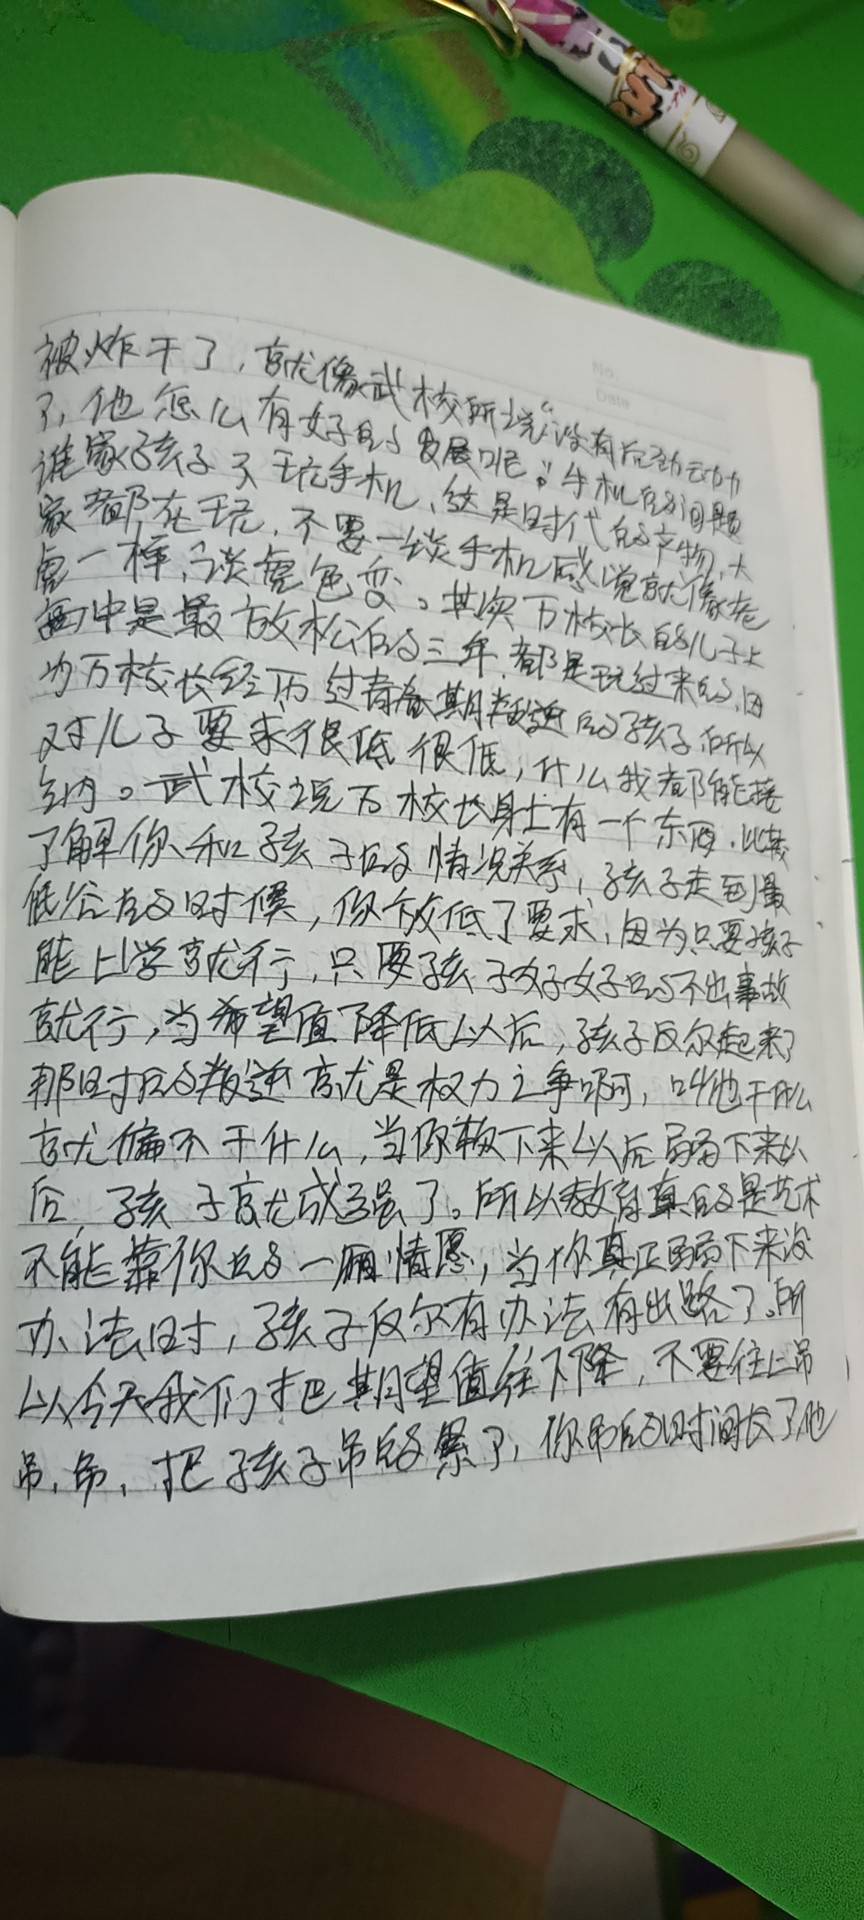 No.
Date
被炸干了，就像武校所说"没有后劲动力
了，他怎么有好的发展呢"。手机的问题
谁家孩子不玩手机，这是时代的产物，大
家都在玩，不要一谈手机感觉就像老
虎一样，谈虎色变。其实万校长的儿子上
高中是最放松的三年，都是玩过来的，因
为万校长经历过青春期叛逆的孩子，所以
对儿子要求很低很低，什么我都能接
纳。武校说万校长身上有一个东西，比较
了解你和孩子的情况关系，孩子走到最
低谷的时候，你放低了要求，因为只要孩子
能上学就行，只要孩子好好的不出事故
就行，当希望值下降低以后，孩子反尔起来了
那时的叛逆就是权力之争啊，叫他干什么
就偏不干什么，当你软下来以后弱下来以
后，孩子就成强了。所以教育真的是艺术
不能靠你的一厢情愿，当你真正弱下来没
办法时，孩子反尔有办法有出路了。所
以今天我们才把期望值往下降，不要往上吊
吊，吊，把孩子吊的累了，你吊的时间长了他